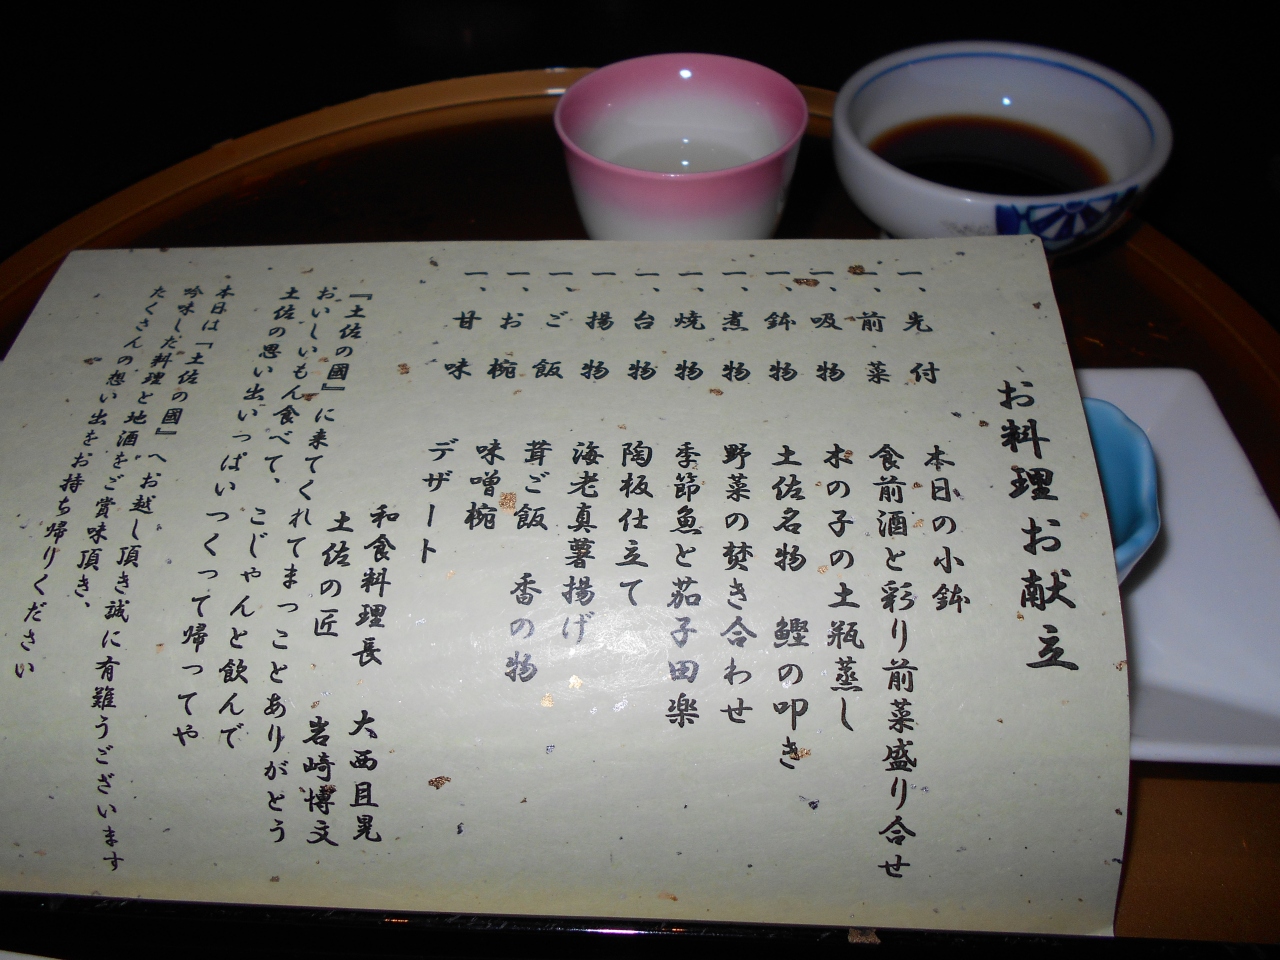 お料理お献立
一、先付 本日の小鉢
一、前菜 食前酒と彩り前菜盛り合せ
一、吸物 木の子の土瓶蒸し
一、鉢物 土佐名物 鰹の叩き
一、煮物 野菜の焚き合わせ
一、焼物 季節魚と茄子田楽
一、台物 陶板仕立て
一、揚物 海老真薯揚げ
一、ご飯 茸ご飯 香の物
一、お椀 味噌椀
一、甘味 デザート
和食料理長 大西且晃
土佐の匠 岩崎博文
『土佐の國』に来てくれてまっことありがとう
おいしいもん食べて、こじゃんと飲んで
土佐の思い出いっぱいつくって帰ってや
本日は「土佐の國』へお越し頂き誠に有難うございます
吟味しだ料理と地酒をご賞味頂き、
たくさんの想い出をお持ち帰りください